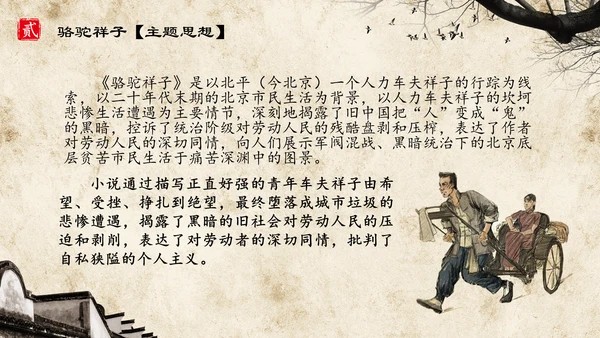 贰 骆驼祥子【主题思想】
《骆驼祥子》是以北平（今北京）一个人力车夫祥子的行踪为线
索，以二十年代末期的北京市民生活为背景，以人力车夫祥子的坎坷
悲惨生活遭遇为主要情节，深刻地揭露了旧中国把“人”变成“鬼”
的黑暗，控诉了统治阶级对劳动人民的残酷盘剥和压榨，表达了作者
对劳动人民的深切同情，向人们展示军阀混战、黑暗统治下的北京底
层贫苦市民生活于痛苦深渊中的图景。
小说通过描写正直好强的青年车夫祥子由希
望、受挫、挣扎到绝望，最终堕落成城市垃圾的
悲惨遭遇，揭露了黑暗的旧社会对劳动人民的压
迫和剥削，表达了对劳动者的深切同情，批判了
自私狭隘的个人主义。